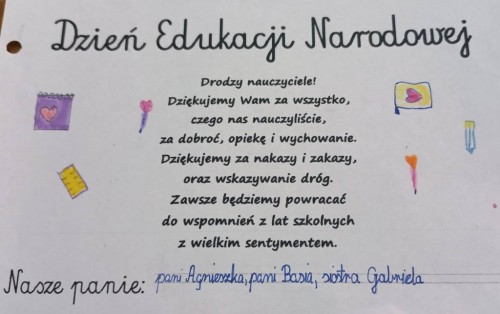 Dzień Edukacji Narodowej
Drodzy nauczyciele!
Dziękujemy Wam za wszystko,
czego nas nauczyliście,
za dobroć, opiekę i wychowanie.
Dziękujemy za nakazy i zakazy,
oraz wskazywanie dróg.
Zawsze będziemy powracać
do wspomnień z lat szkolnych
z wielkim sentymentem.
Nasze panie: pani Agnieszka, pani Basia, siostra Gabriela